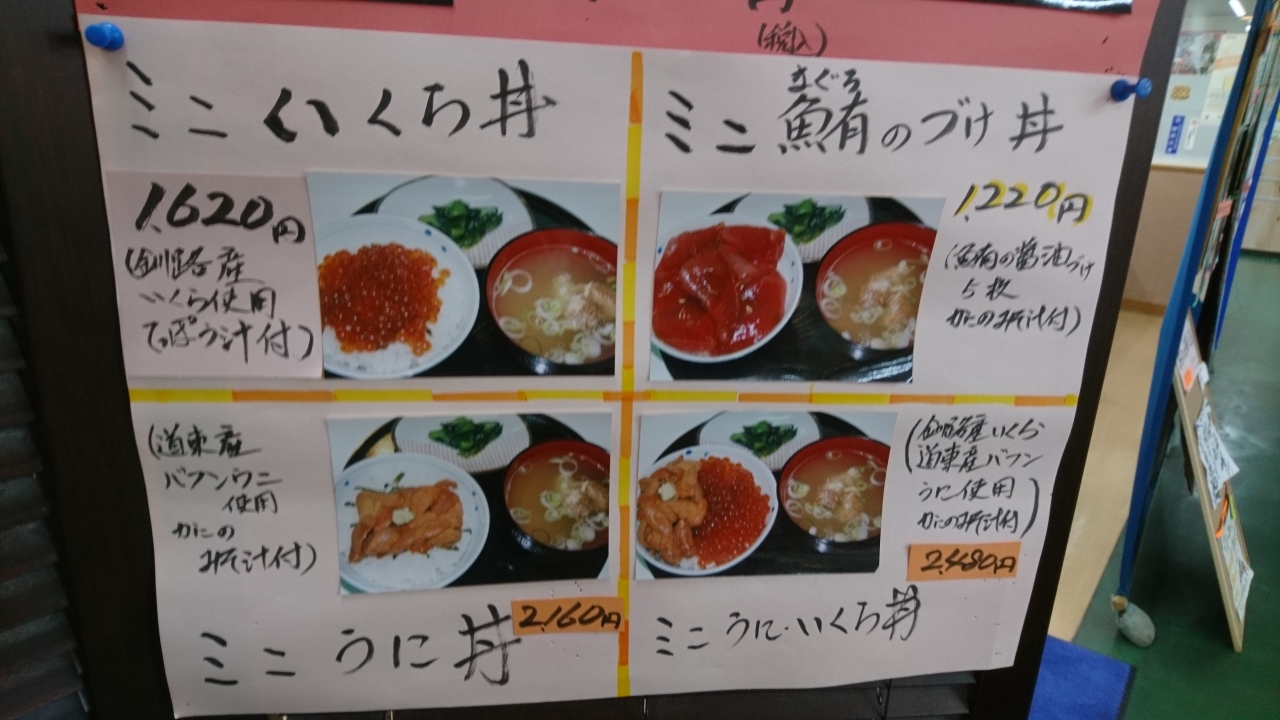 (税込)
ミニ いくら丼
1,620円
(釧路産
いくら使用
てっぽう汁付)
まぐろ
ミニ 鮪のづけ丼
1,220円
(鮪の醤油づけ
5枚
かにのみそ汁付)
(道東産
バフンウニ
使用
かにの
みそ汁付)
2,160円
ミニ うに丼
(釧路産いくら
道東産バフン
うに使用
かにのみそ汁付)
2,480円
ミニ うに・いくら丼